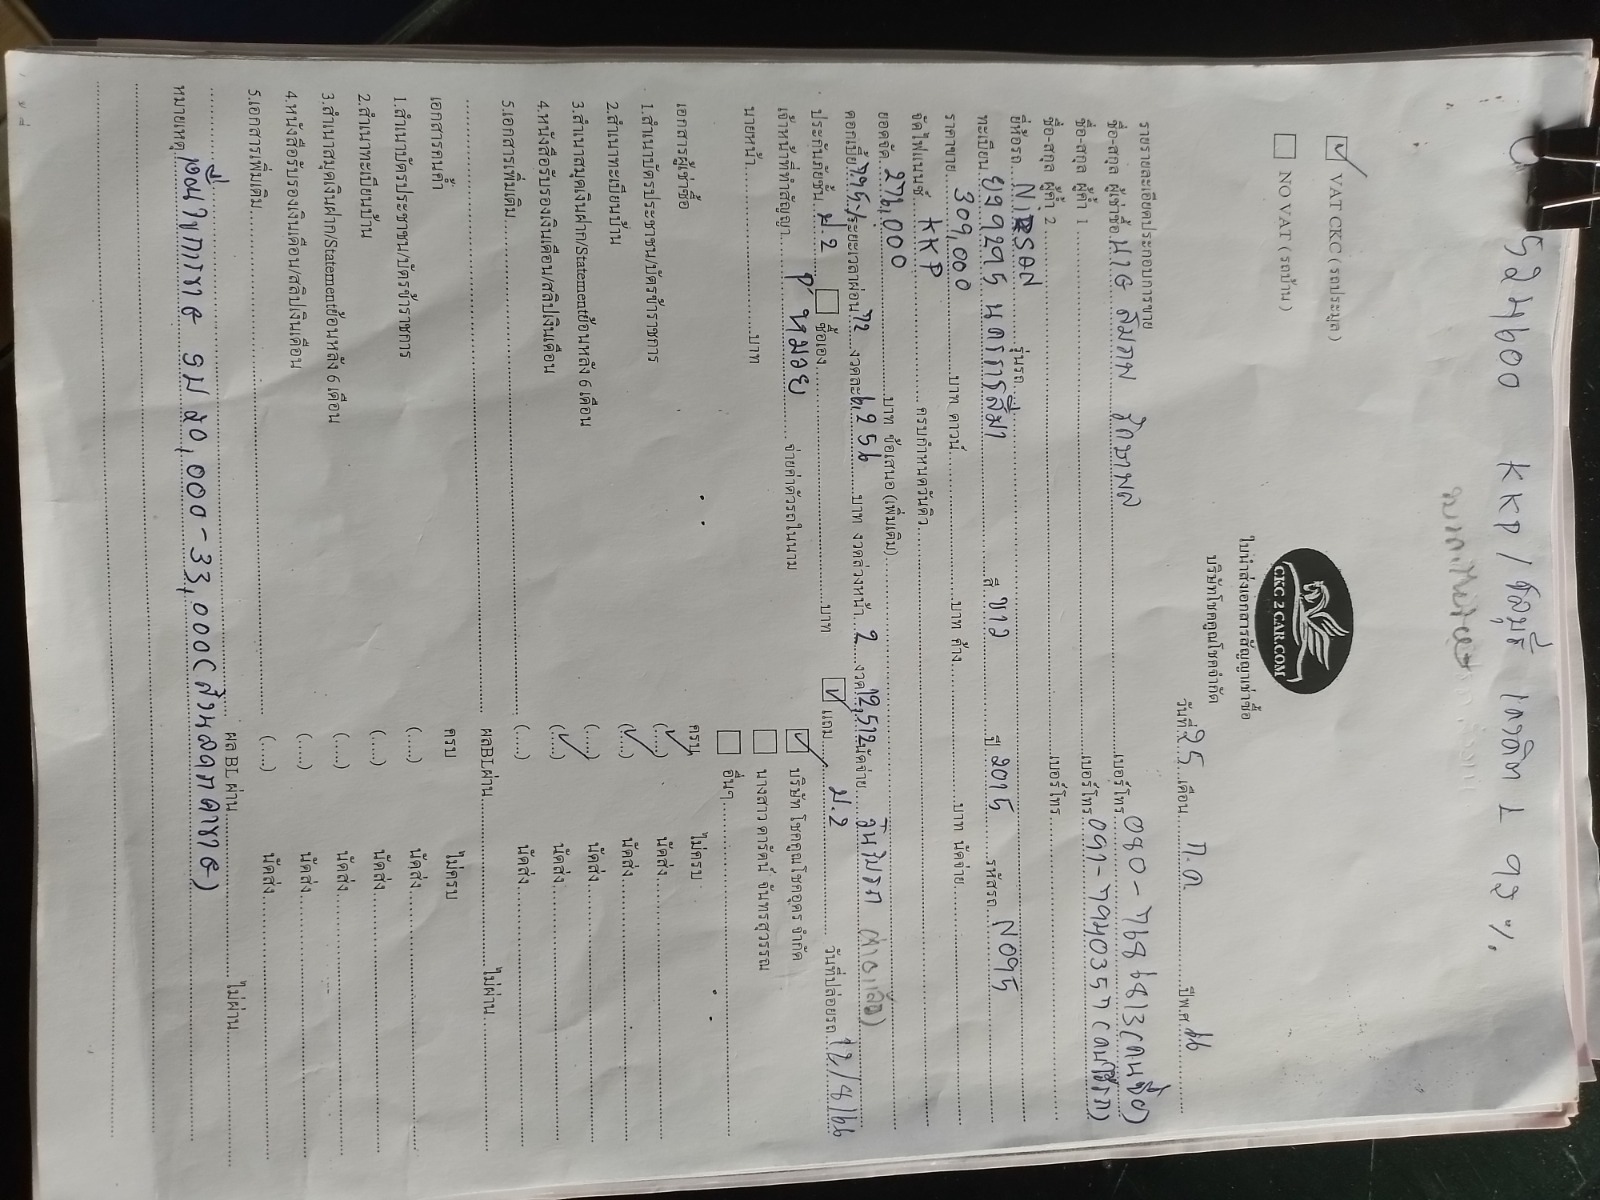 KKP / ชลบุรี เครดิต 1 ดร %
VAT CKC ( รถประมูล )
NO VAT ( รถบ้าน )
CKC 2 CAR.COM
ใบนำส่งเอกสารสัญญาเช่าซื้อ
บริษัทโชคคูณโชคจำกัด
วันที่ 25 เดือน ก.ค ปีพ.ศ 66
รายรายละเอียดประกอบการขาย
ชื่อ-สกุล ผู้เช่าซื้อ นาย เบอร์โทร
ชื่อ-สกุล ผู้ค้ำ 1 เบอร์โทร
ชื่อ-สกุล ผู้ค้ำ 2 เบอร์โทร
ยี่ห้อรถ NISSAN รุ่นรถ
ทะเบียน นครราชสีมา สี ขาว ปี 2015 รหัสรถ N095
ราคาขาย 309,000 บาท ดาวน์ บาท ค้าง บาท นัดจ่าย
จัดไฟแนนซ์ KKP ครบกำหนดวันคิว
ยอดจัด 276,000 บาท ข้อเสนอ (เพิ่มเติม)
ดอกเบี้ย ระยะเวลาผ่อน 72 งวดละ 6,256 บาท งวดล่วงหน้า 2 งวด 12,512 นัดจ่าย วันออกรถ
ประกันภัยชั้น ป 2 ซื้อเอง บาท แถม ป.2 วันที่ปล่อยรถ 12/8/66
เจ้าหน้าที่ทำสัญญา จ่ายค่าตัวรถในนาม บริษัท โชคคูณโชคอุดร จำกัด
นายหน้า บาท นางสาว ดารัตน์ จันทรสุวรรณ
อื่นๆ
เอกสารผู้เช่าซื้อ ครบ ไม่ครบ
1.สำเนาบัตรประชาชน/บัตรข้าราชการ (....) นัดส่ง
2.สำเนาทะเบียนบ้าน (....) นัดส่ง
3.สำเนาสมุดเงินฝาก/Statementย้อนหลัง 6 เดือน (....) นัดส่ง
4.หนังสือรับรองเงินเดือน/สลิปเงินเดือน (....) นัดส่ง
5.เอกสารเพิ่มเติม (....) นัดส่ง
ผลBLผ่าน ไม่ผ่าน
เอกสารคนค้ำ ครบ ไม่ครบ
1.สำเนาบัตรประชาชน/บัตรข้าราชการ (....) นัดส่ง
2.สำเนาทะเบียนบ้าน (....) นัดส่ง
3.สำเนาสมุดเงินฝาก/Statementย้อนหลัง 6 เดือน (....) นัดส่ง
4.หนังสือรับรองเงินเดือน/สลิปเงินเดือน (....) นัดส่ง
5.เอกสารเพิ่มเติม (....) นัดส่ง
ผล BL ผ่าน ไม่ผ่าน
หมายเหตุ - 33,000 (ส่วนลดราคาขาย)